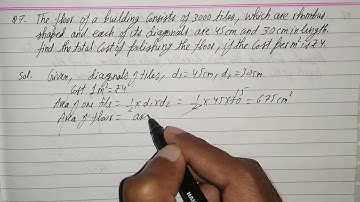 Q7. The floor of a building consists of 3000 tiles, which are rhombus
shaped and each of its diagonals are 45cm and 30cm in length.
find the total cost of polishing the floor, if the cost per m² is ₹4.
Sol. Given, diagonals of tiles, d₁ = 45cm, d₂ = 30cm
Cost 1m² = ₹4
Area of one tile = 1/2 × d₁ × d₂ = 1/2 × 45 × 30 15 = 675 cm²
Area of floor = ar